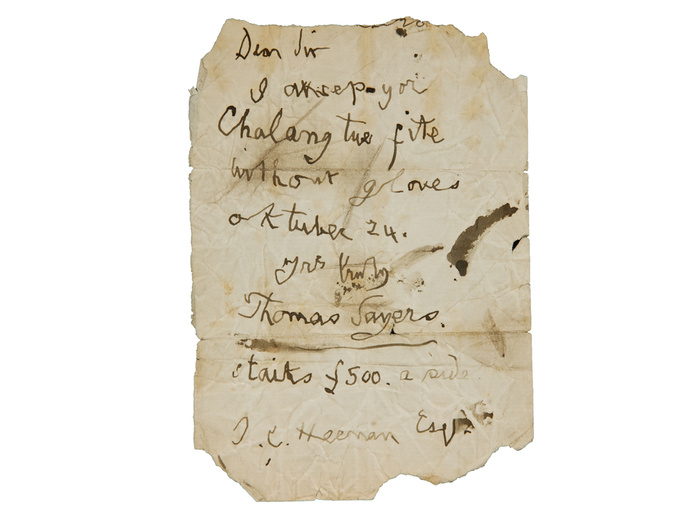 Dear Sir
I akcep yor
Chalang tue fite
without gloves
oktuber 24.
yrs truly
Thomas Sayers.
staiks £500. a side
J. C. Heenan Esqr